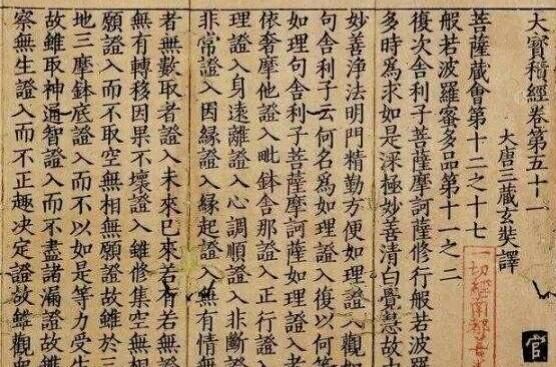 大寶積經卷第五十一
大唐三藏玄奘譯
菩薩藏會第十二之十七
般若波羅蜜多品第十一之二
復次舍利子菩薩摩訶薩修行般若波羅
多時為求如是深極妙善清白覺慧故
妙善淨法明門精勤方便如理證入觀如
句舍利子云何名為如理證入復以何等
如理句舍利子菩薩摩訶薩如理證入者
依奢摩他證入毗鉢舍那證入正行證
理證入身遠離證入心調順證入非斷證
非常證入因緣證入緣起證入無有情無
者無數取者證入未來已來若有若無證
無有轉移因果不壞證入雖修集空無相
願證入而不取空無相無願證故雖於三
地三摩鉢底證入而不以如是等力受生
故雖取神通智證入而不盡諸漏證故雖
察無生證入而不正趣決定證故雖觀
一切經南
官